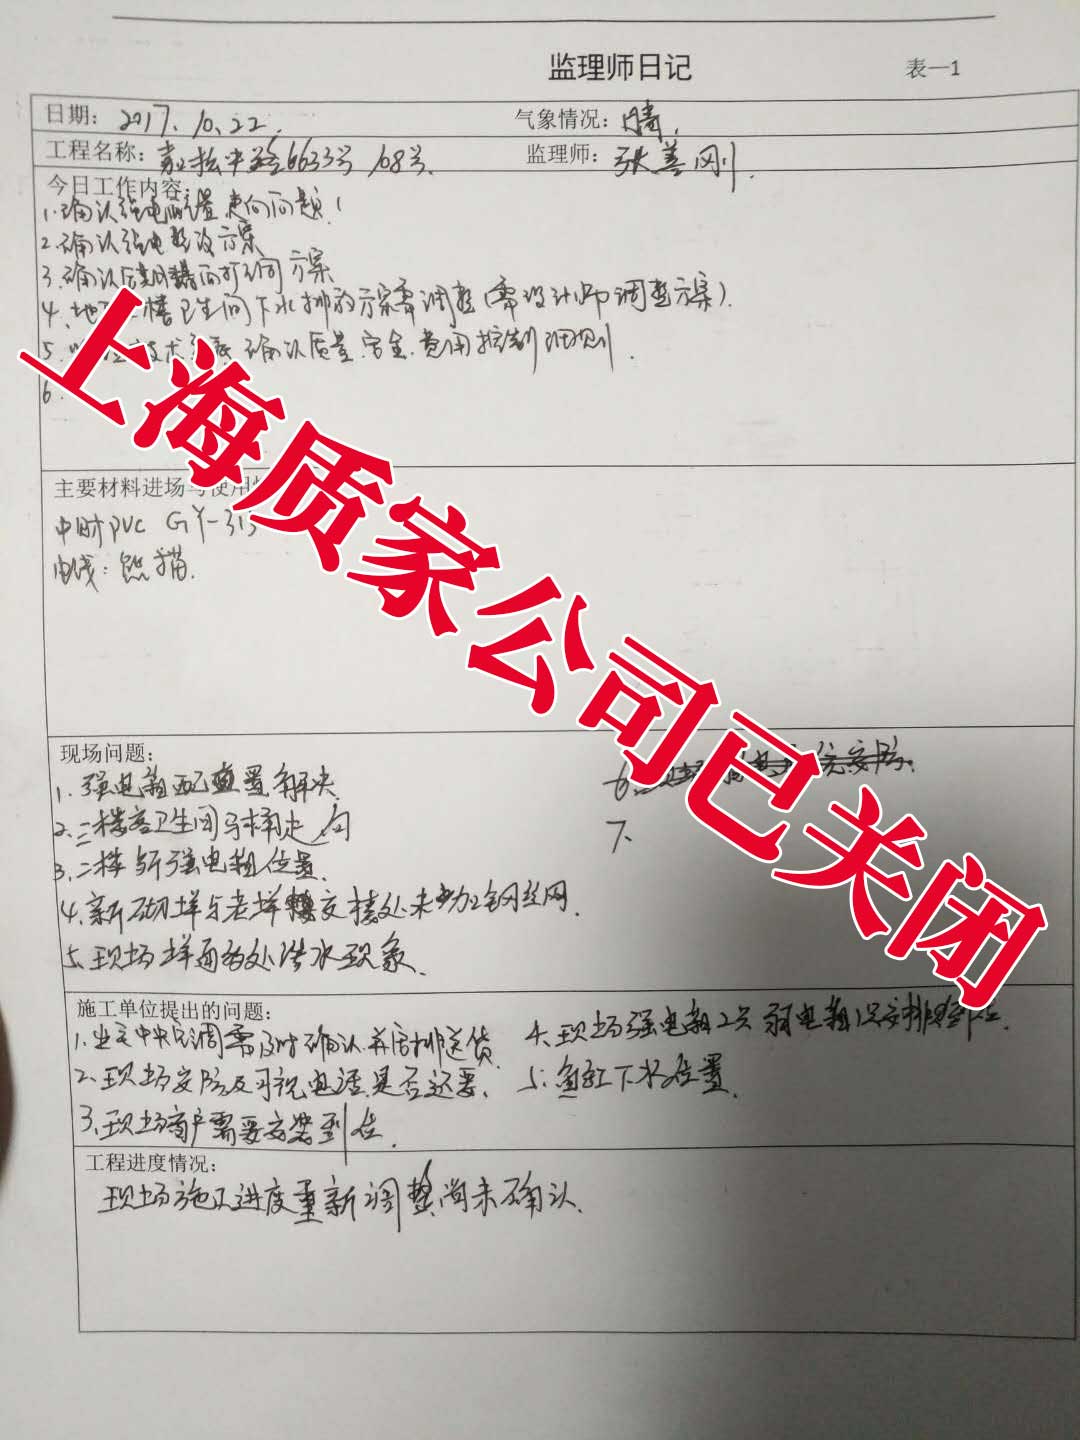 监理师日记
表一1
日期：2017.10.22.
气象情况：晴.
工程名称：嘉松中路6633号 108号.
监理师：张善刚.
今日工作内容：
1.确认强电配置走向问题！
2.确认强电整改方案
3.确认后期墙面打洞方案
4.地下 楼卫生间下水排放方案需调整（需设计师调整方案）.
5. 技术 确认质量.安全.费用控制细则.
6.
上海质家公司已关闭
主要材料进场与使用
中财PVC GY-315
电线：熊猫.
现场问题：
1.强电箱配置解决.
2.二楼客卫生间马桶走向
3.二楼 强电箱位置.
4.新砌墙与老墙交接处未加钢丝网.
5.现场墙面 处渗水现象.
6.
7.
施工单位提出的问题：
1.业主中央空调需及时确认并安排送货.
2.现场安防及可视电话是否还要.
3.现场窗户需要安装到位.
4.现场强电箱2只弱电箱1只安排到位.
5.鱼缸下水位置.
工程进度情况：
现场施工进度重新调整尚未确认.